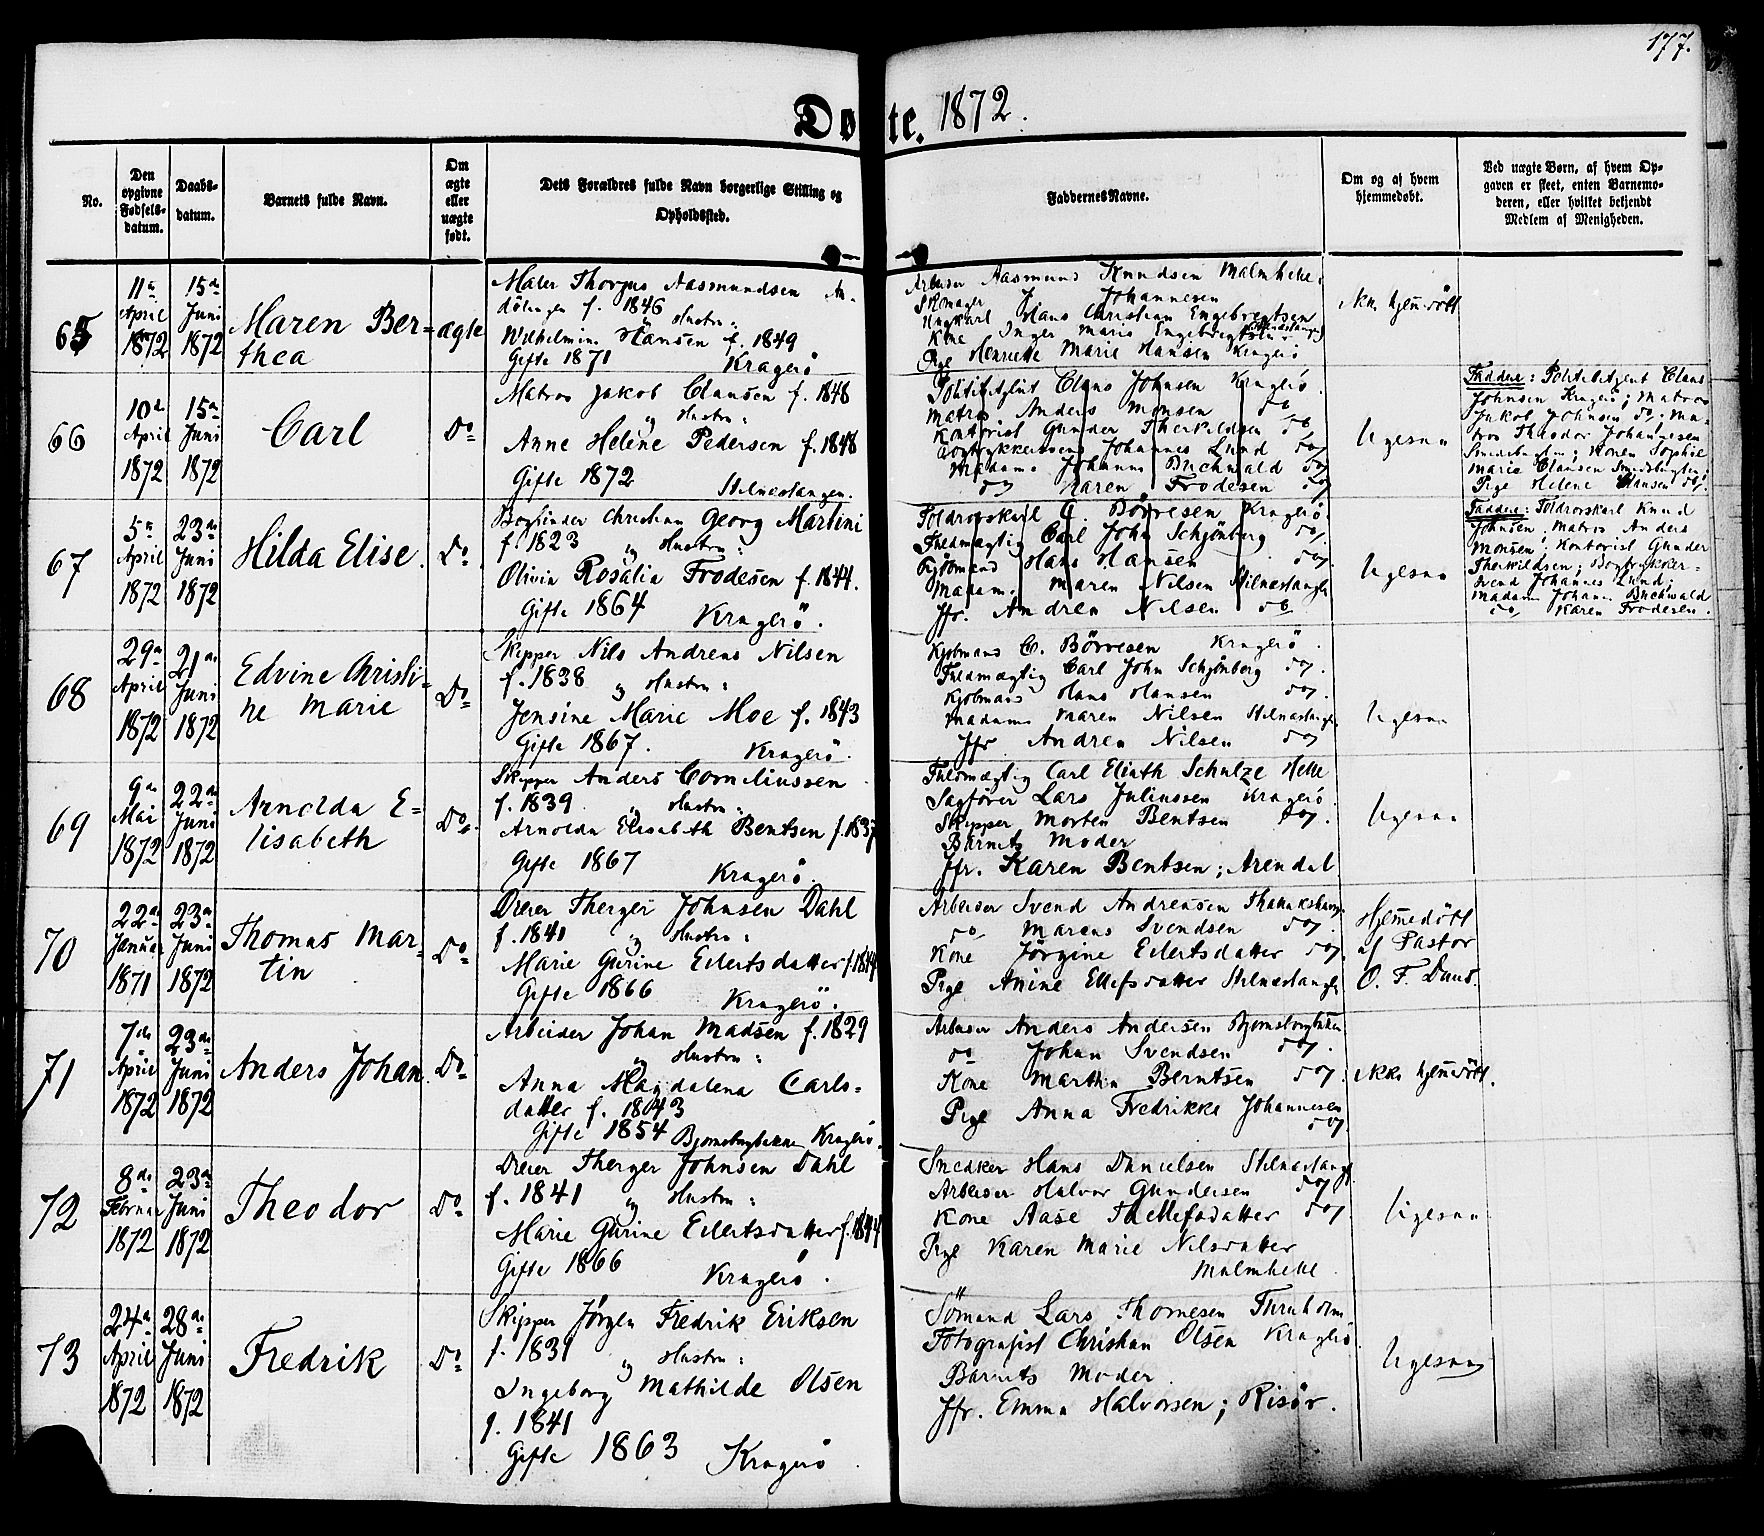 177.
Døbte. 1872.
No.
Den opgivne Fødselsdatum.
Daabsdatum.
Barnets fulde Navn.
Om ægte eller uægte født.
Dets Forældres fulde Navn borgerlige Stilling og Opholdssted.
Faddernes Navne.
Om og af hvem hjemmedøbt.
Ved uægte Børn, af hvem Opgaven er skeet, enten Barnemoderen, eller hvilket bekjendt Medlem af Menigheden.
65
11te April 1872
15de Juni 1872
Maren Ber=
thea
ægte
Maler Thorgus Aasmundsen
f. 1846
og Hustru:
Wilhelmine Hansen f. 1849
Gifte 1871 Kragerö
Arbeider Aasmund Knudsen Malmhele.
Skomager J Johannesen
Ungkarl Hans Christian Engebregtsen
Kone Inger Marie Engebregtsen
Pige Henriette Marie Hansen Kragerö
ikke hjemedöbt
66
10de April 1872
15de Juni 1872
Carl
Do
Matros Jakob Clausen f. 1848
og Hustru:
Anne Helene Pedersen f. 1848
Gifte 1872 Stilnestangen.
Politibetjent Claus Johnsen Kragerö.
Matros Anders Monsen do
Kontorist Gunder Therkildsen do
Bogtrykkersvend Johannes Lund do
Madame Johanne Buchwald do
do Karen Frodesen do
ligesaa
Faddere: Politibetjent Claus
Johnsen Kragerö; Matros
Jakob Johnsen do; Ma=
tros Theodor Johannesen
Smedsbugten; Konen Sophie
Marie Clausen Smedsbugten;
Pige Helene Clausen do.
67
5te April 1872
23de Juni 1872
Hilda Elise.
Do
Bogbinder Christian Georg Martini
f. 1823 og Hustru:
Olivia Rosalia Frodesen f. 1844.
Gifte 1864 Kragerö.
Toldrorskarl C. Börresen Kragerö.
Fuldmægtig Carl John Schjönberg do.
Kjöbmand Hans Hansen do
Madam. Maren Nilsen Stilnestangen
Jfr. Andrea Nilsen do
ligesaa
Faddere: Toldrorskarl Knud
Johnsen; Matros Anders
Monsen; Kontorist Gunder
Therkildsen; Bogtrykker=
svend Johannes Lund;
Madam Johane Buchwald
do Karen Frodesen.
68
29de April 1872
21de Juni 1872
Edvine Christi=
ne Marie
Do
Skipper Nils Andreas Nilsen
f. 1838 og Hustru:
Jensine Marie Moe f. 1843
Gifte 1867. Kragerö.
Kjöbmand C. Börresen Kragerö.
Fuldmægtig Carl John Schjönberg do.
Kjöbmand Hans Hansen do.
Madame Maren Nilsen Stilnestangen
Jfr Andrea Nilsen do
ligesaa
69
9de Mai 1872
22de Juni 1872
Arnolda E=
lisabeth
Do
Skipper Anders Corneliussen
f. 1839 og Hustru:
Arnolda Elisabeth Bentsen f. 1837
Gifte 1867 Kragerö.
Fuldmægtig Carl Eliath Schulze Helle
Sagförer Lars Juliussen Kragerö.
Skipper Morten Bentsen do.
Barnets Moder
Jfr. Karen Bentsen; Arendal
ligesaa
70
22de Januar 1871
23de Juni 1872
Thomas Mar=
tin
Do
Dreier Therger Johnsen Dahl
f. 1840 og Hustru:
Marie Gurine Eilertsdatter f. 1844
Gifte 1866 Kragerö.
Arbeider Svend Andreasen
do Marcus Svendsen do.
Kone Jörgine Eilertsdatter do
Pige Anine Ellefsdatter Stilnestangen
Hjemedöbt
af Pastor
O. F. Daus.
71
7de April 1872
23de Juni 1872
Anders Johan.
Do
Arbeider Johan Madsen f. 1829
og Hustru:
Anna Magdalena Carls=
datter f. 1843
Gifte 1854 Bjornsbugbakken Kragerö.
Arbeider Anders Andersen
do Johan Svendsen do.
Kone Marthe Berntsen do.
Pige Anna Fredrikke Johannesen
do
ikke hjemedöbt.
72
8de Februar 1872
23de Juni 1872
Theodor
Do
Dreier Therger Johnsen Dahl
f. 1841 og Hustru:
Marie Gurine Eilertsdatter f. 1844
Gifte 1866 Kragerö.
Snedker Hans Danielsen Stilnestangen
Arbeider Halvor Gundersen do
Kone Aase Thellefsdatter do
Pige Karen Marie Nilsdatter
Malmhelle.
ligesaa
73
24de April 1872
28de Juni 1872
Fredrik
Do
Skipper Jörgen Fredrik Eriksen
f. 1831 og Hustru:
Ingeborg Mathilde Olsen
f. 1841
Gifte 1863 Kragerö.
Sömand Lars Thomesen Furuholm
Fotografist Christian Olsen Kragerö.
Barnets Moder.
Jfr. Emma Halvorsen; Risör.
ligesaa